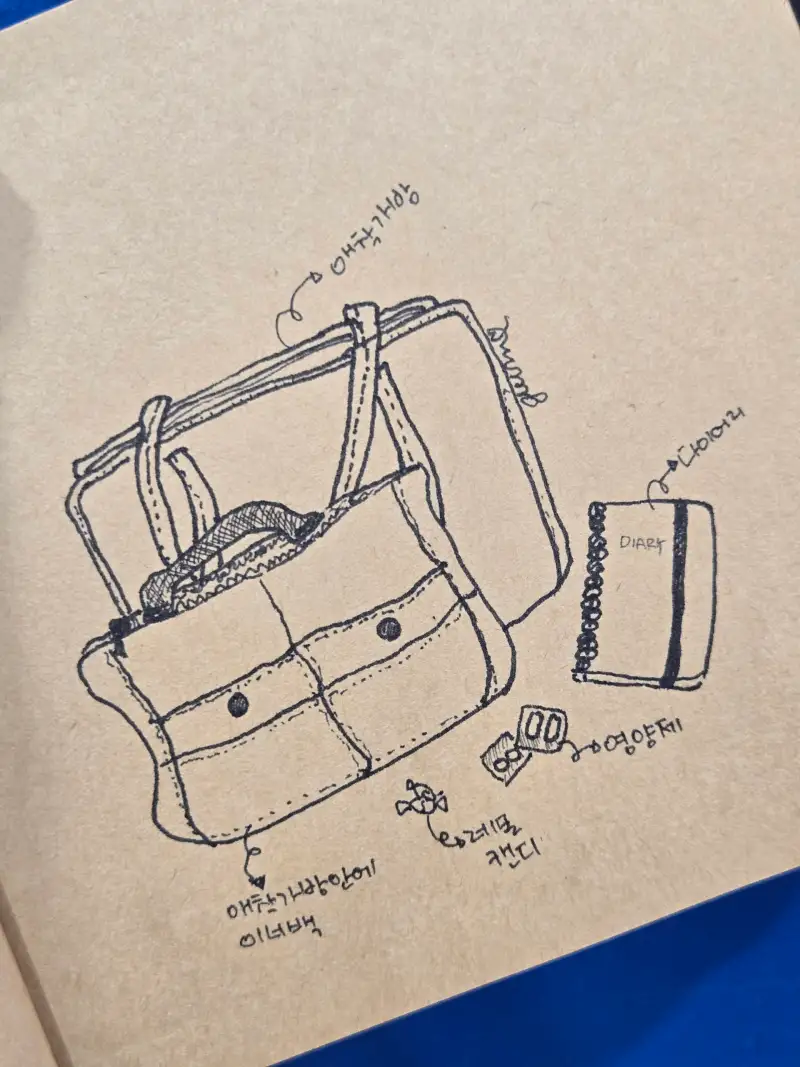 애착가방
다이어리
DIARY
영양제
레몬
캔디
애착가방안에
이너백